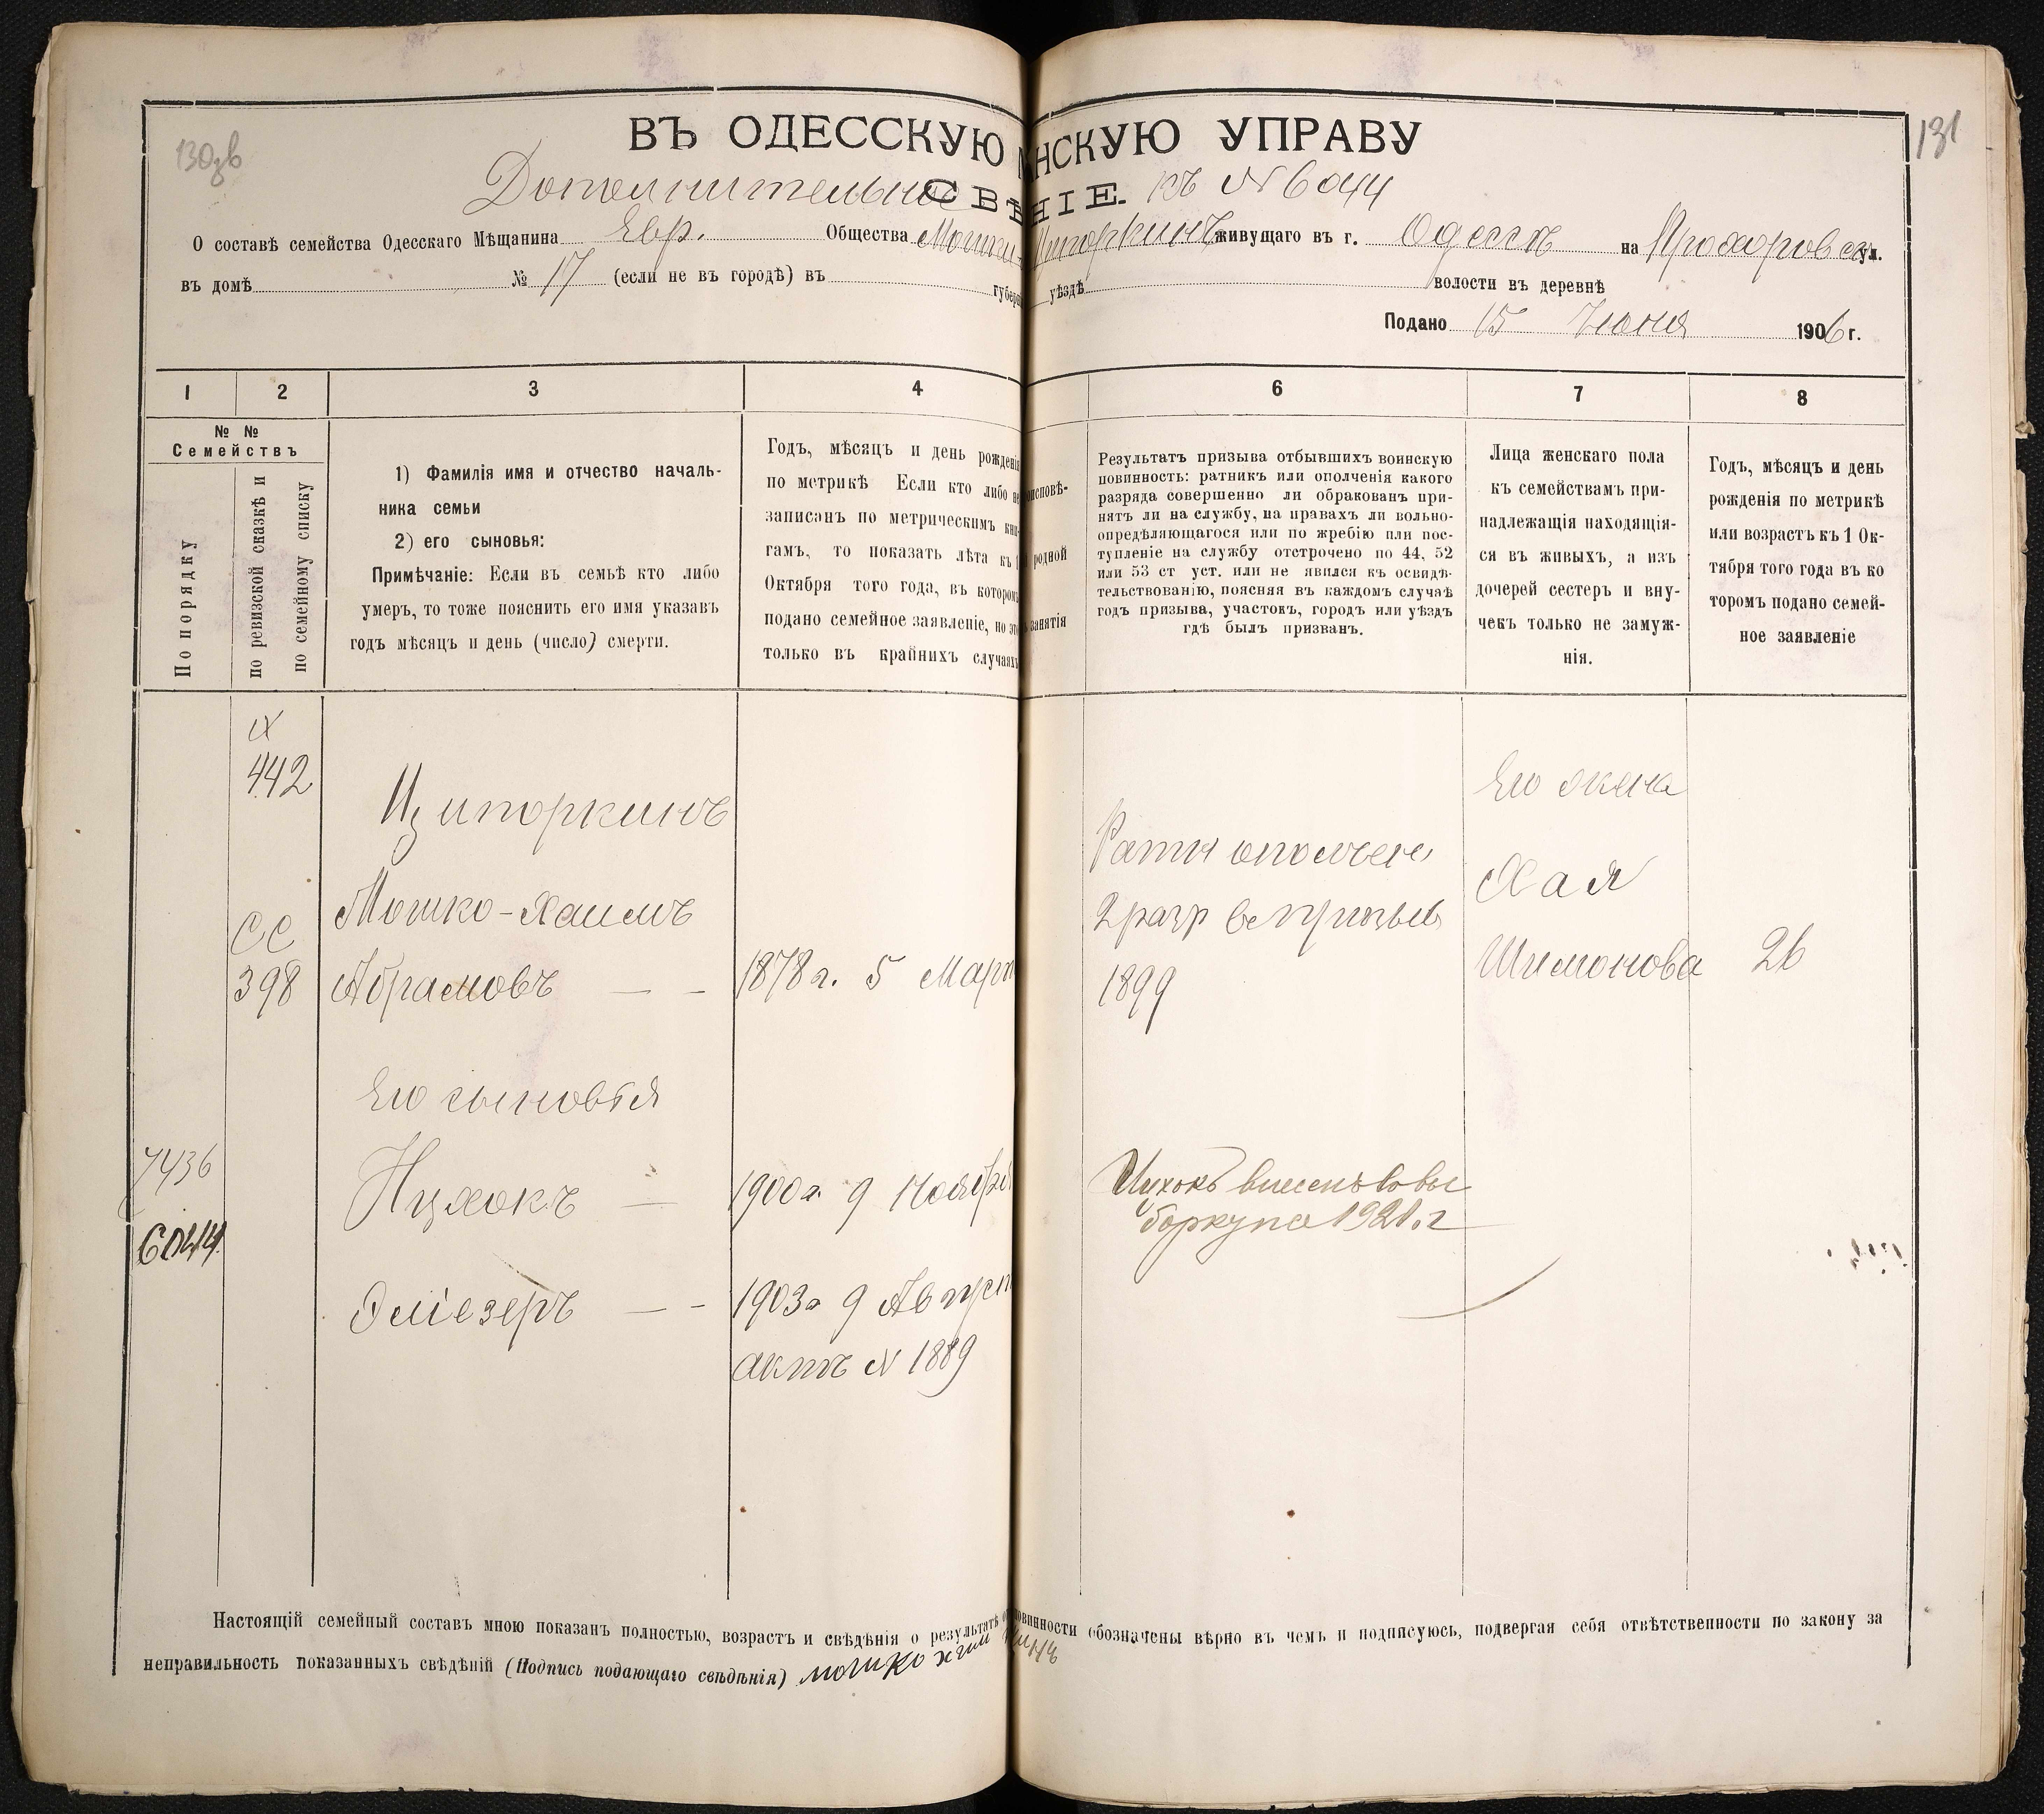 130 зв
131
ВЪ ОДЕССКУЮ НСКУЮ УПРАВУ
Дополнительное СВѢ НІЕ. къ № 6044
О составѣ семейства Одесскаго Мѣщанина Евр. Общества Мошки Ципоркинъ живущаго въ г. Одессѣ на Прохоровск ул.
въ домѣ № 17 (если не въ городѣ) въ губерн уѣздѣ волости въ деревнѣ
Подано 15 Іюня 1906 г.
1 2 3 4 6 7 8
№ №
Семействъ
По порядку
по ревизской сказкѣ и
по семейному списку
1) Фамилія имя и отчество началь-
ника семьи
2) его сыновья:
Примѣчаніе: Если въ семьѣ кто либо
умеръ, то тоже пояснить его имя указавъ
годъ мѣсяцъ и день (число) смерти.
Годъ, мѣсяцъ и день рожденія
по метрикѣ Если кто либо не
записанъ по метрическимъ кни-
гамъ, то показать лѣта къ 1
Октября того года, въ которомъ
подано семейное заявленіе, но это
только въ крайнихъ случаяхъ
оисповѣ-
родной
занятія
Результатъ призыва отбывшихъ воинскую
повинность: ратникъ или ополченія какого
разряда совершенно ли обракованъ при-
нятъ ли на службу, на правахъ ли вольно-
опредѣляющагося или по жребію или пос-
тупленіе на службу отстрочено по 44, 52
или 53 ст уст. или не явился къ освидѣ-
тельствованію, поясняя въ каждомъ случаѣ
годъ призыва, участокъ, городъ или уѣздъ
гдѣ былъ призванъ.
Лица женскаго пола
къ семействамъ при-
надлежащія находящія-
ся въ живыхъ, а изъ
дочерей сестеръ и вну-
чекъ только не замуж-
нія.
Годъ, мѣсяцъ и день
рожденія по метрикѣ
или возрастъ къ 1 Ок-
тября того года въ ко
торомъ подано семей-
ное заявленіе
IX
442
Ципоркинъ
Мошко-Хаимъ
СС
398
Абрамовъ — — 1878 г. 5 Март
Ратн ополчен
2 разр въ призывъ
1899
Его жена
Хая
Шимонова 26
Его сыновья
7436
Ицхокъ — 1900 г. 9 Ноября
Ицхокъ внесенъ во вы
1921. г
6044
Эліезеръ — — 1903 г 9 Август
актъ N 1889
Настоящій семейный составъ мною показанъ полностью, возрастъ и свѣдѣнія о результатѣ о повинности обозначены вѣрно въ чемъ и подписуюсь, подвергая себя отвѣтственности по закону за
неправильность показанныхъ свѣдѣній (Подпись подающаго свѣдѣнія) мошко хаим